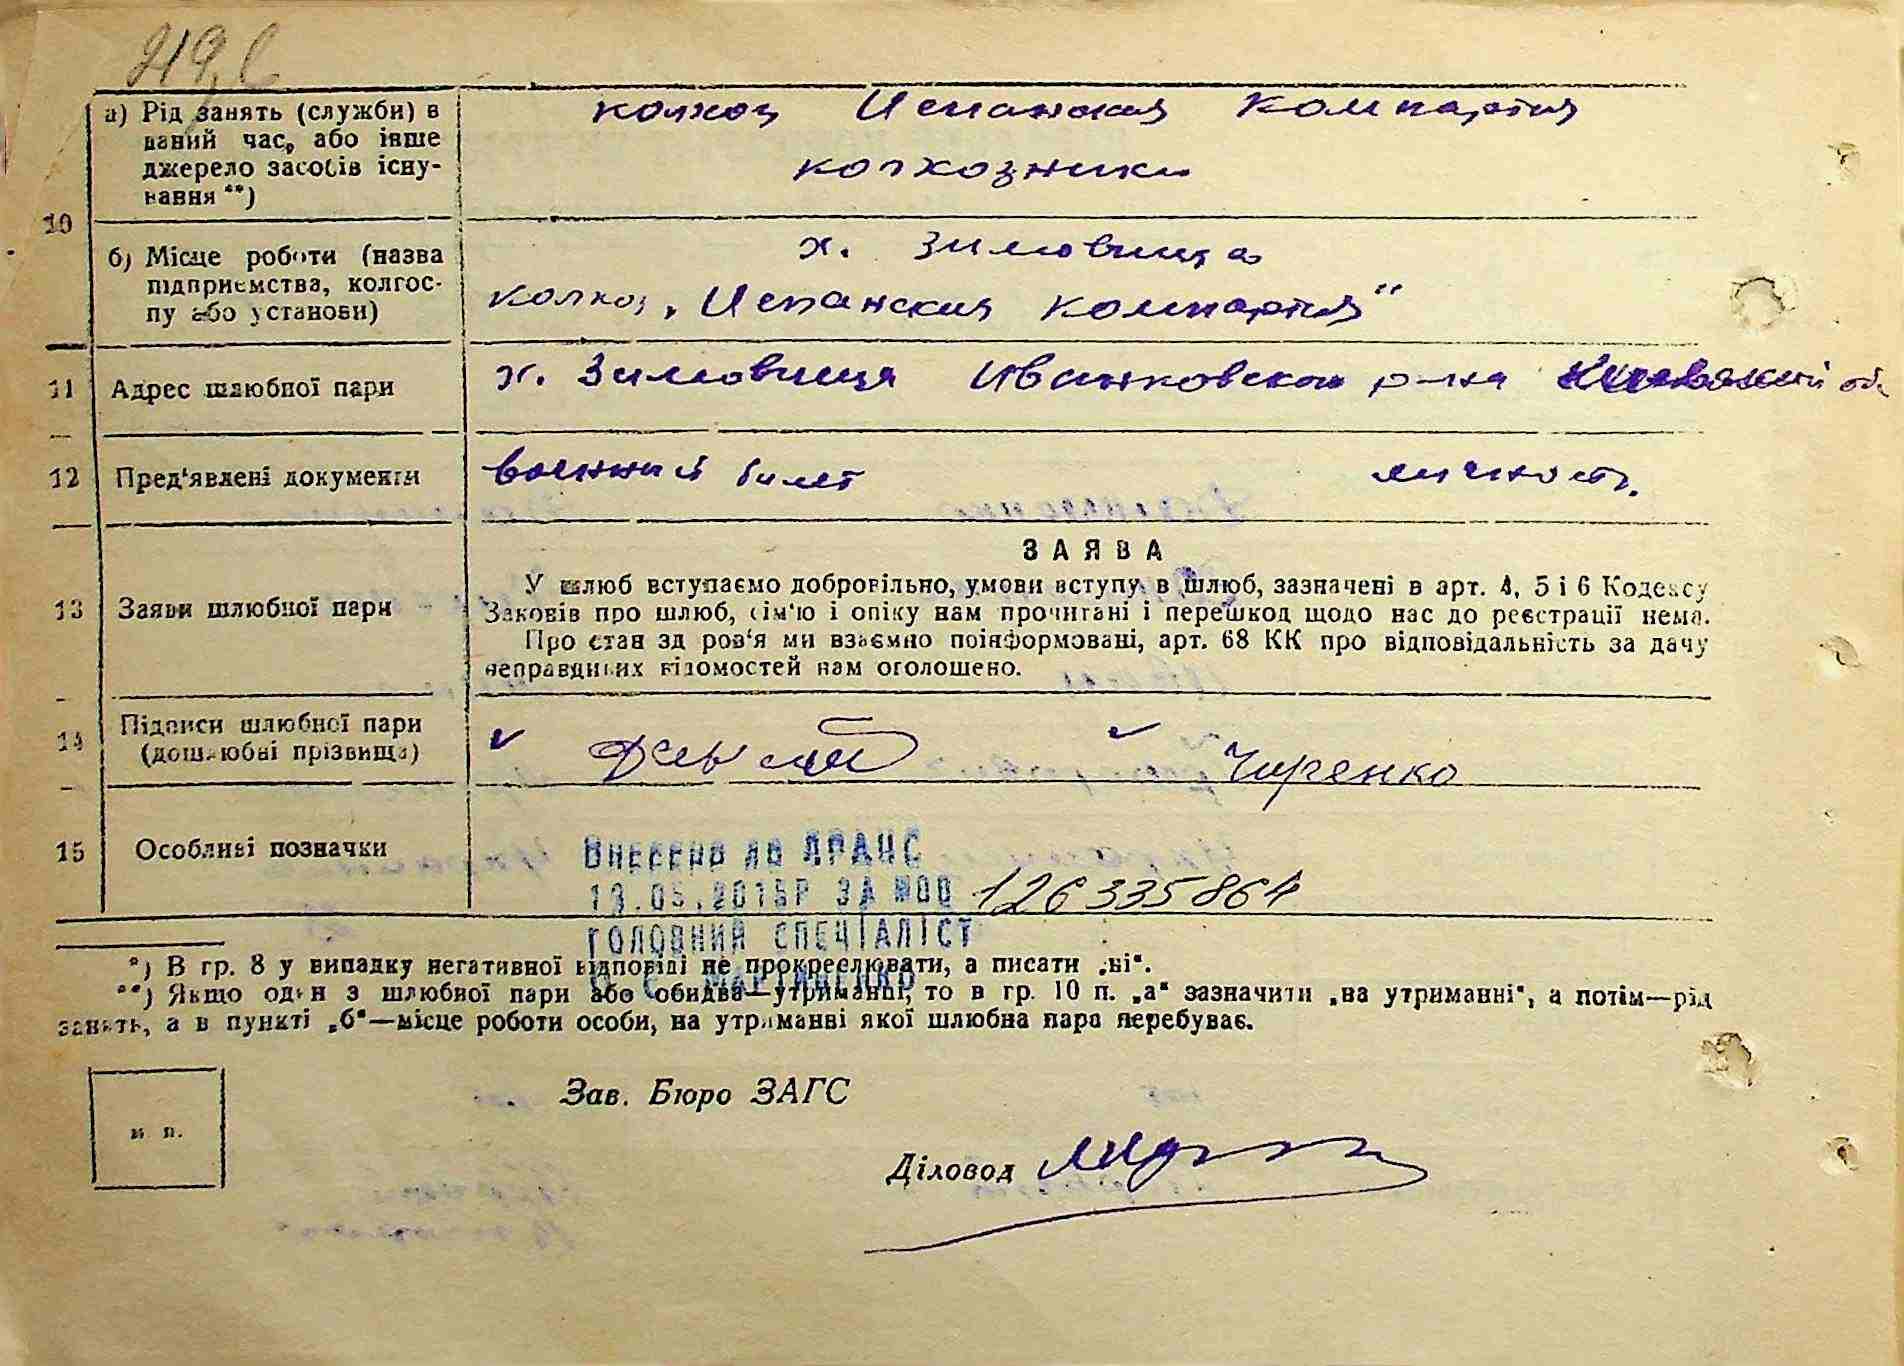 а) Рід занять (служби) в
даний час, або інше
джерело засобів існу-
вання **)
колхоз Испанския Компартия
колхозники
10
б) Місце роботи (назва
підприємства, колгос-
пу або установи)
х. Зимовища
колхоз „Испанския компартия"
11 Адрес шлюбної пари х. Зимовища Иванковском р-на Киевский об.
12 Пред'явлені документи военный билет личность.
ЗАЯВА
13 Заяви шлюбної пари
У шлюб вступаємо добровільно, умови вступу в шлюб, зазначені в арт. 4, 5 і 6 Кодексу
Законів про шлюб, сім'ю і опіку нам прочитані і перешкод щодо нас до реєстрації нема.
Про стан здоров'я ми взаємно поінформовані, арт. 68 КК про відповідальність за дачу
неправдивих відомостей нам оголошено.
14 Підписи шлюбної пари
(дошлюбні прізвища)
Чиренко
15 Особливі позначки
Внесено до ДРАЦС
19.05.2015р за №00 126335864
головний спеціаліст
Мартиненко
*) В гр. 8 у випадку негативної відповіді не прокреслювати, а писати „ні".
**) Якщо один з шлюбної пари або обидва—утриманці, то в гр. 10 п. „а" зазначити „на утриманні", а потім—рід
занять, а в пункті „б"—місце роботи особи, на утриманні якої шлюбна пара перебуває.
Зав. Бюро ЗАГС
м. п.
Діловод